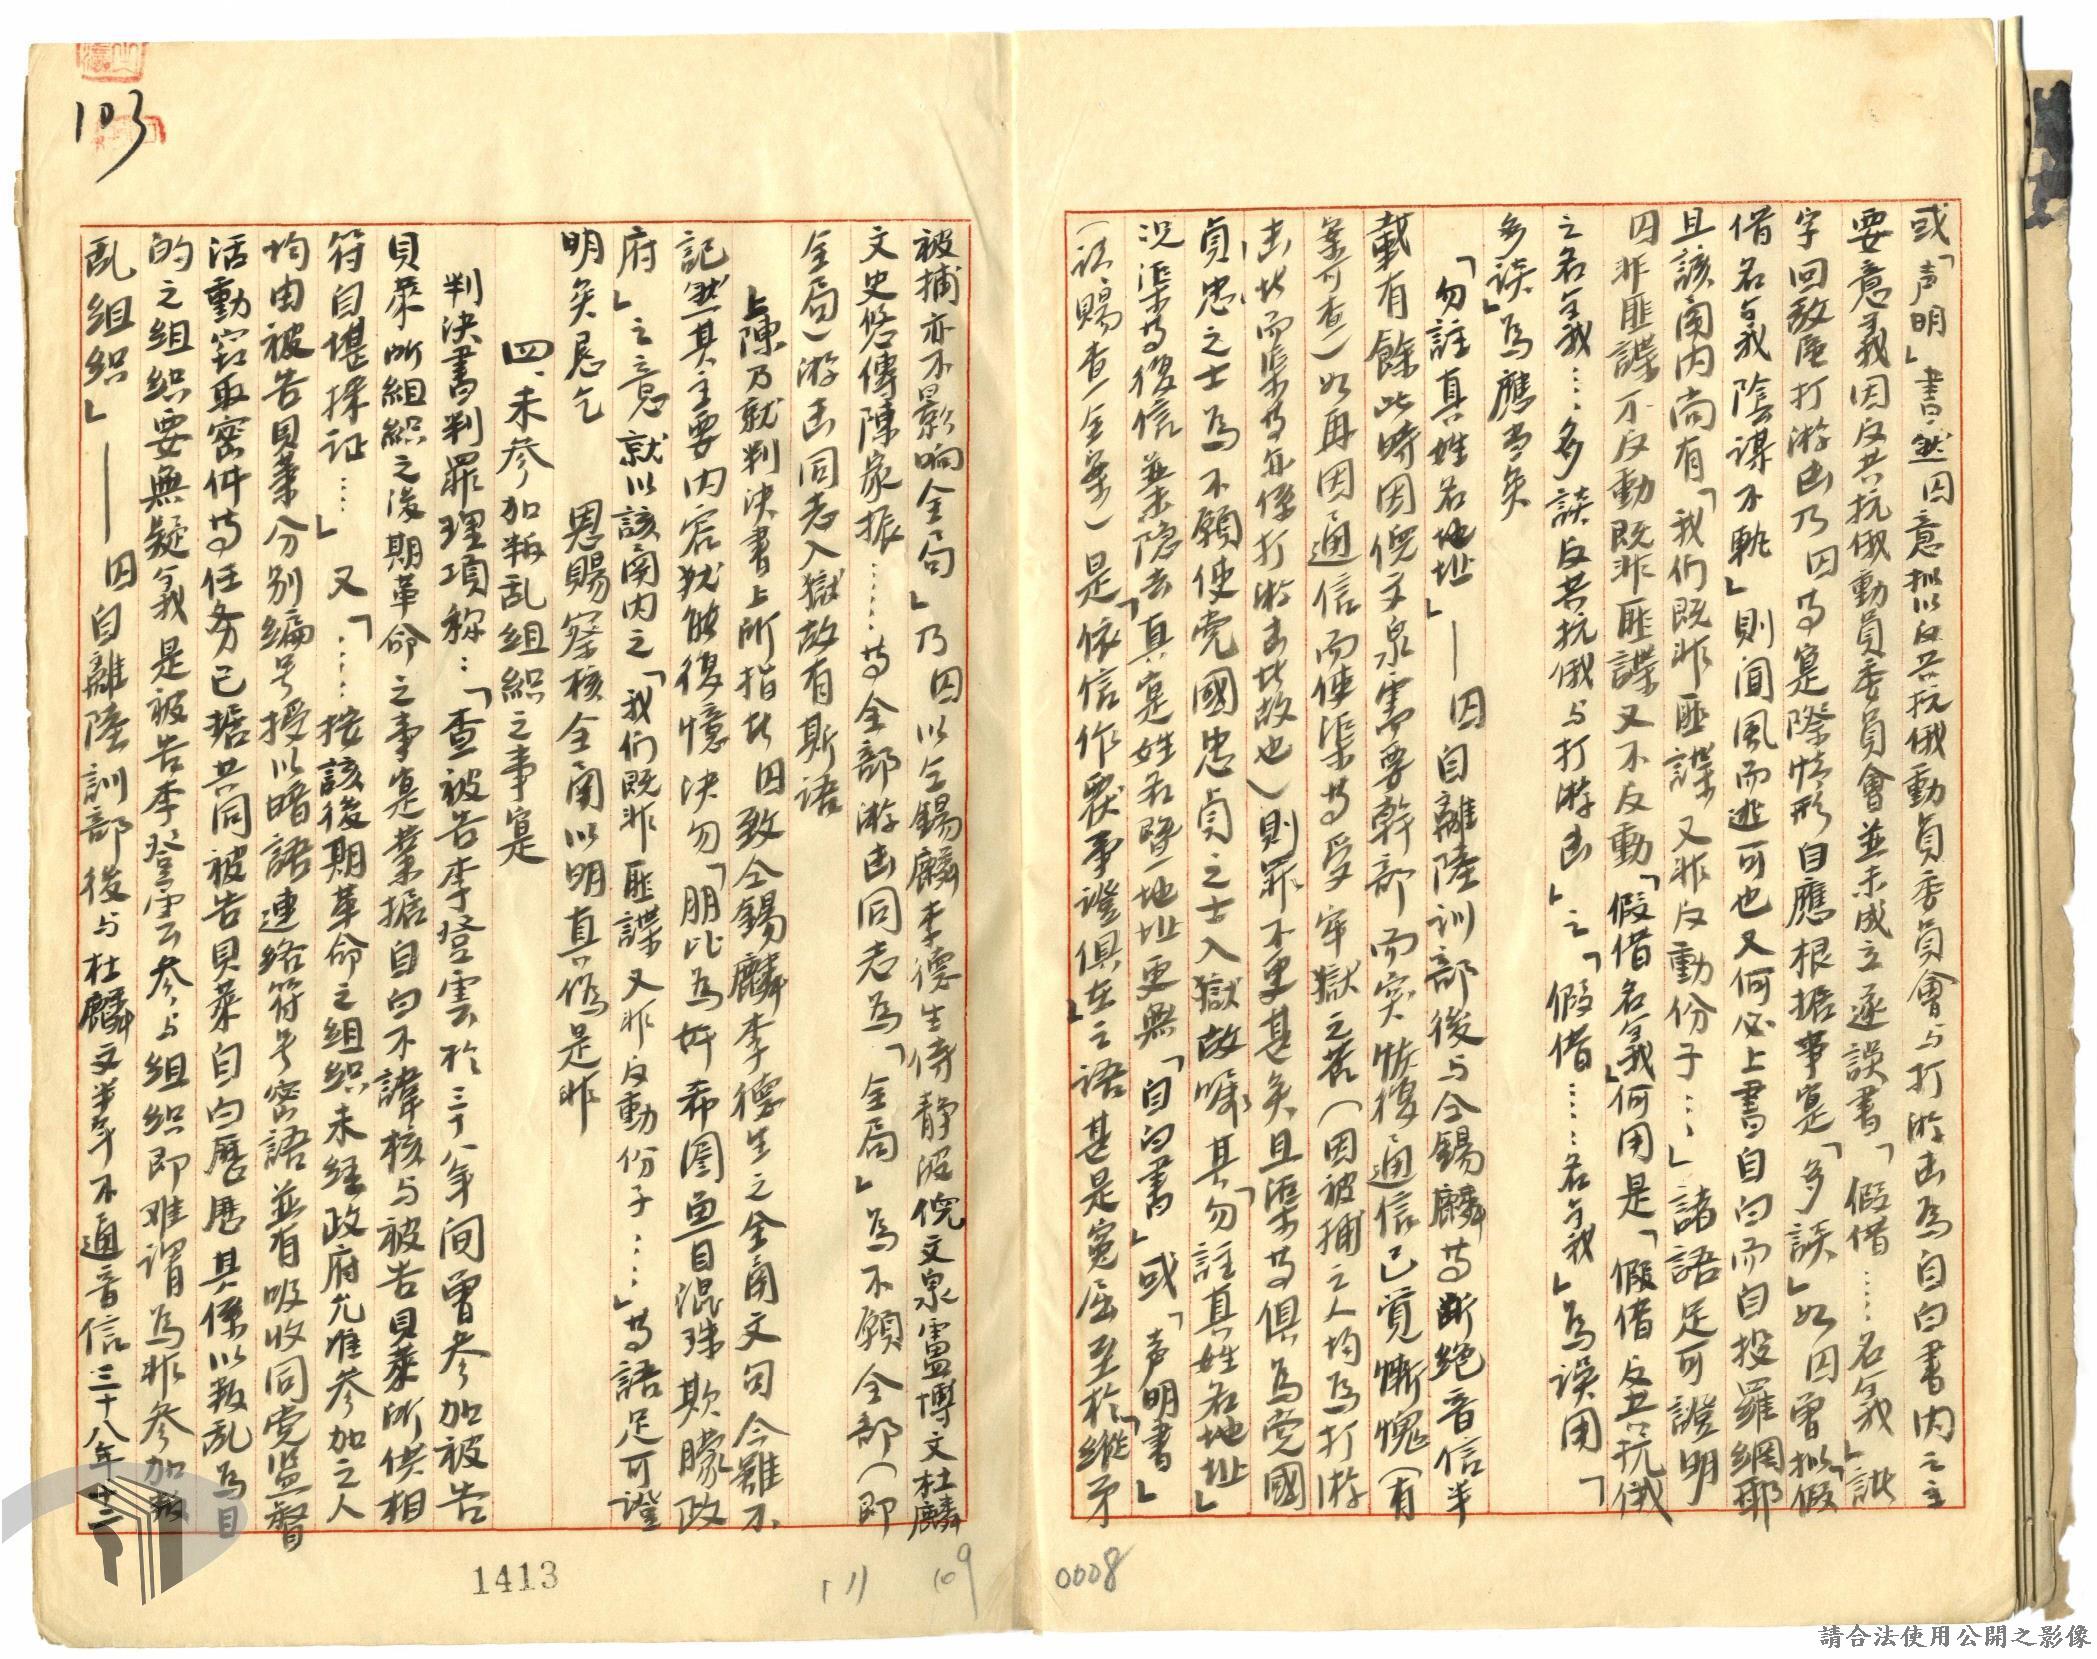 或「声明」書、然囚意拟以反共抗俄動員委員會与打游击為自白書内之主
要意義因反共抗俄動員委員會並未成立遂誤書「假借……名义」訛
字回敌庵打游击乃囚等寔際情形自應根据事寔「多談」如囚曾拟「假
借名义陰谋不軌」則聞風而逃可也又何必上書自白而自投羅網耶
且該函内尚有「我们既非匪諜又非反動份子…」諸語足可證明
囚非匪諜不反動既非匪諜又不反動「假借名义」何用是「假借反共抗俄
之名义……多談反共抗俄与打游击」之「假借……名义」為误用「
多談」為應当矣
「勿註真姓名地址」——囚自離陸訓部後与仝錫麟等断絶音信半
載有餘此時因倪文泉需要幹部而突恢復通信已覚慚愧(有
案可查)如再因通信而使渠等受牢獄之苦(因被捕之人均為打游
击此而渠等亦係打游击此故也)則罪不更甚矣且渠等俱為党國
貞忠之士為不願使党國忠貞之士入獄故嘱其「勿註真姓名地址」
况渠等復信並未隐去「真寔姓名暨地址更無「自白書」或「声明書」
(請賜查一全案)是依信作覆事證俱在之語甚是寃屈至於「縱矛
被捕亦不影响全局」乃囚以仝錫麟李德生侍静波倪文泉盧博文杜麟
文史悠傳陳家振……等全部游击同志為「全局」為不願全部(即
全局)游击同志入獄故有斯语
上陳乃就判決書上所指此囚致仝錫麟李德生之全函文句今雖不
記然其主要内容犹能復憶決勿「朋比為奸希圖魚目混珠欺矇政
府」之意就以該函内之「我们既非匪諜又非反動份子……」等語足可證
明矣恳乞 恩賜察核全函以明真偽是非
四、未参加叛乱組織之事寔
判決書判罪理項称:「查被告李登雲於三十八年间曾参加被告
貝萊所組織之後期革命之事寔業据自白不諱核与被告貝萊所供相
符自堪採证…」又「……按該後期革命之組織未经政府允准参加之人
均由被告貝萊分别编号授以暗語連络符号密語並有吸收同党监督
活動窃取密件等任务已据共同被告貝萊自白歷歷其係以叛乱為目
的之组织要無疑义是被告李登云参与组织即难谓為非参加叛
乱组织」——囚自離陸訓部後与杜麟文半年不通音信三十八年十二
103
1413
111
109
0008
請合法使用公開之影像